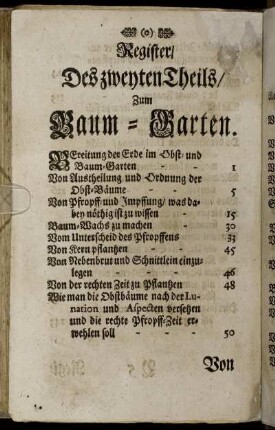 (o)
Register/
Des zweyten Theils/
Zum
Baum-Garten.
BEreitung der Erde im Obst- und
Baum-Garten - - 1
Von Austheilung und Ordnung der
Obst-Bäume - - 5
Von Pfropff und Impffung/ was da-
bey nöthig ist zu wissen - 15
Baum-Wachs zu machen - 30
Vom Unterscheid des Pfropffens 33
Von Kern pflantzen - - 45
Von Nebenbrut und Schnittlein einzu-
legen - - - 46
Von der rechten Zeit zu Pflantzen 48
Wie man die Obstbäume nach der Lu-
nation und Aspecten versetzen
und die rechte Pfropff-Zeit er-
wehlen soll - - - 50
Von